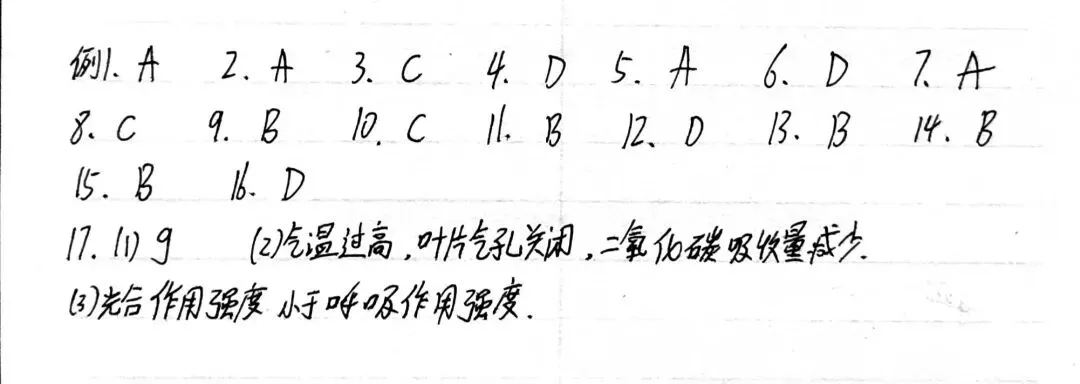 例1. A 2. A 3. C 4. D 5. A 6. D 7. A
8. C 9. B 10. C 11. B 12. D 13. B 14. B
15. B 16. D
17. (1) g (2)气温过高,叶片气孔关闭,二氧化碳吸收量减少.
(3)光合作用强度小于呼吸作用强度.